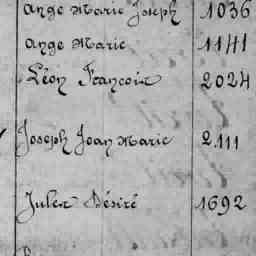 Ange Marie Joseph 1036
Ange Marie 1141
Léon François 2024
Joseph Jean Marie 2111
Jules Désiré 1692